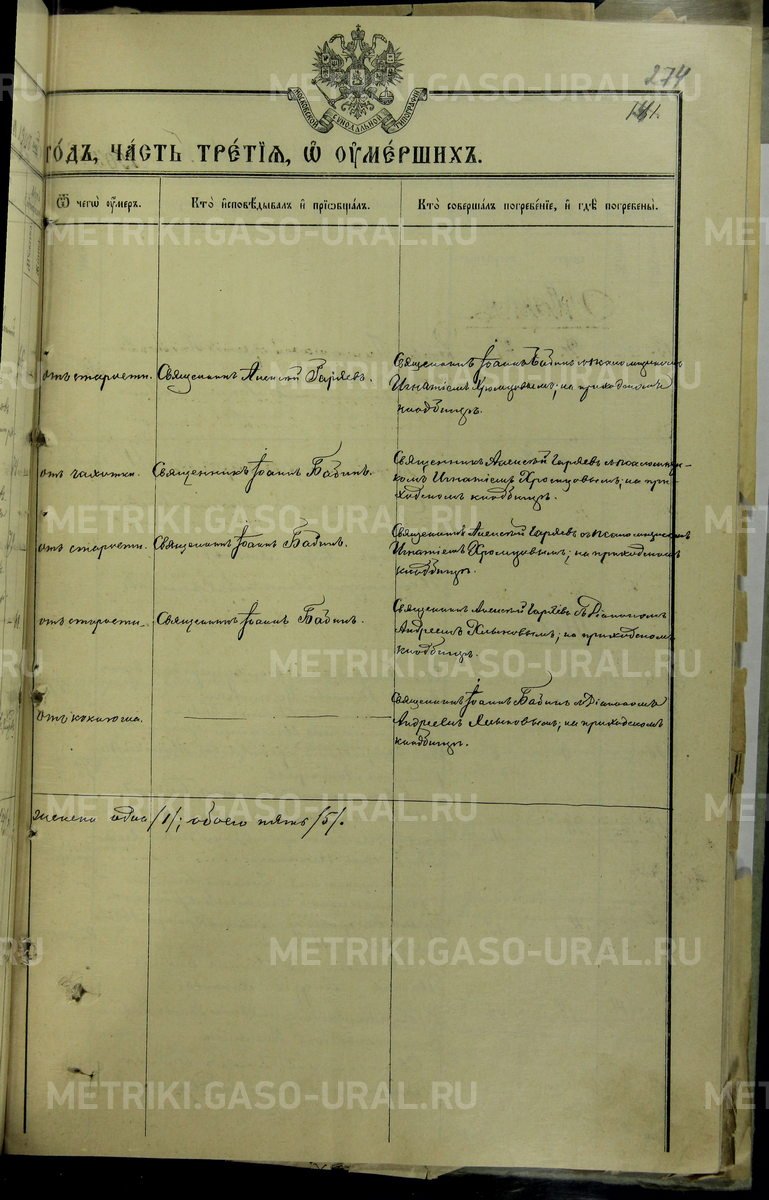 274
141.
МОСКОВСКОЙ СѴНОДАЛЬНОЙ ТИПОГРАФІИ
го́дъ, ча́сть тре́тїѧ, ѽ оу҆ме́ршихъ.
Ѿ чегѡ̀ оу҆́меръ.
Кто̀ и҆сповѣ́дывалъ и҆ прїѡбща́лъ.
Кто̀ соверша́лъ погребе́нїе, и҆ гдѣ̀ погребены̀.
отъ старости.
Священникъ Алексѣй Гаряевъ.
Священникъ Іоаннъ Бабинъ съ псаломщикомъ
Игнатіемъ Хромцовымъ; на приходскомъ
кладбищѣ.
отъ чахотки.
Священникъ Іоаннъ Бабинъ.
Священникъ Алексѣй Гаряевъ съ псаломщи-
комъ Игнатіемъ Хромцовымъ; на при-
ходскомъ кладбищѣ.
отъ старости.
Священникъ Іоаннъ Бабинъ.
Священникъ Алексѣй Гаряевъ съ псаломщикомъ
Игнатіемъ Хромцовымъ; на приходскомъ
кладбищѣ.
отъ старости.
Священникъ Іоаннъ Бабинъ.
Священникъ Алексѣй Гаряевъ съ Діакономъ
Андреемъ; на приходскомъ
кладбищѣ.
отъ коклюша.
Священникъ Іоаннъ Бабинъ съ Діакономъ
Андреемъ; на приходскомъ
кладбищѣ.
женска одна /1/; обоего пять /5/.
METRIKI.GASO-URAL.RU